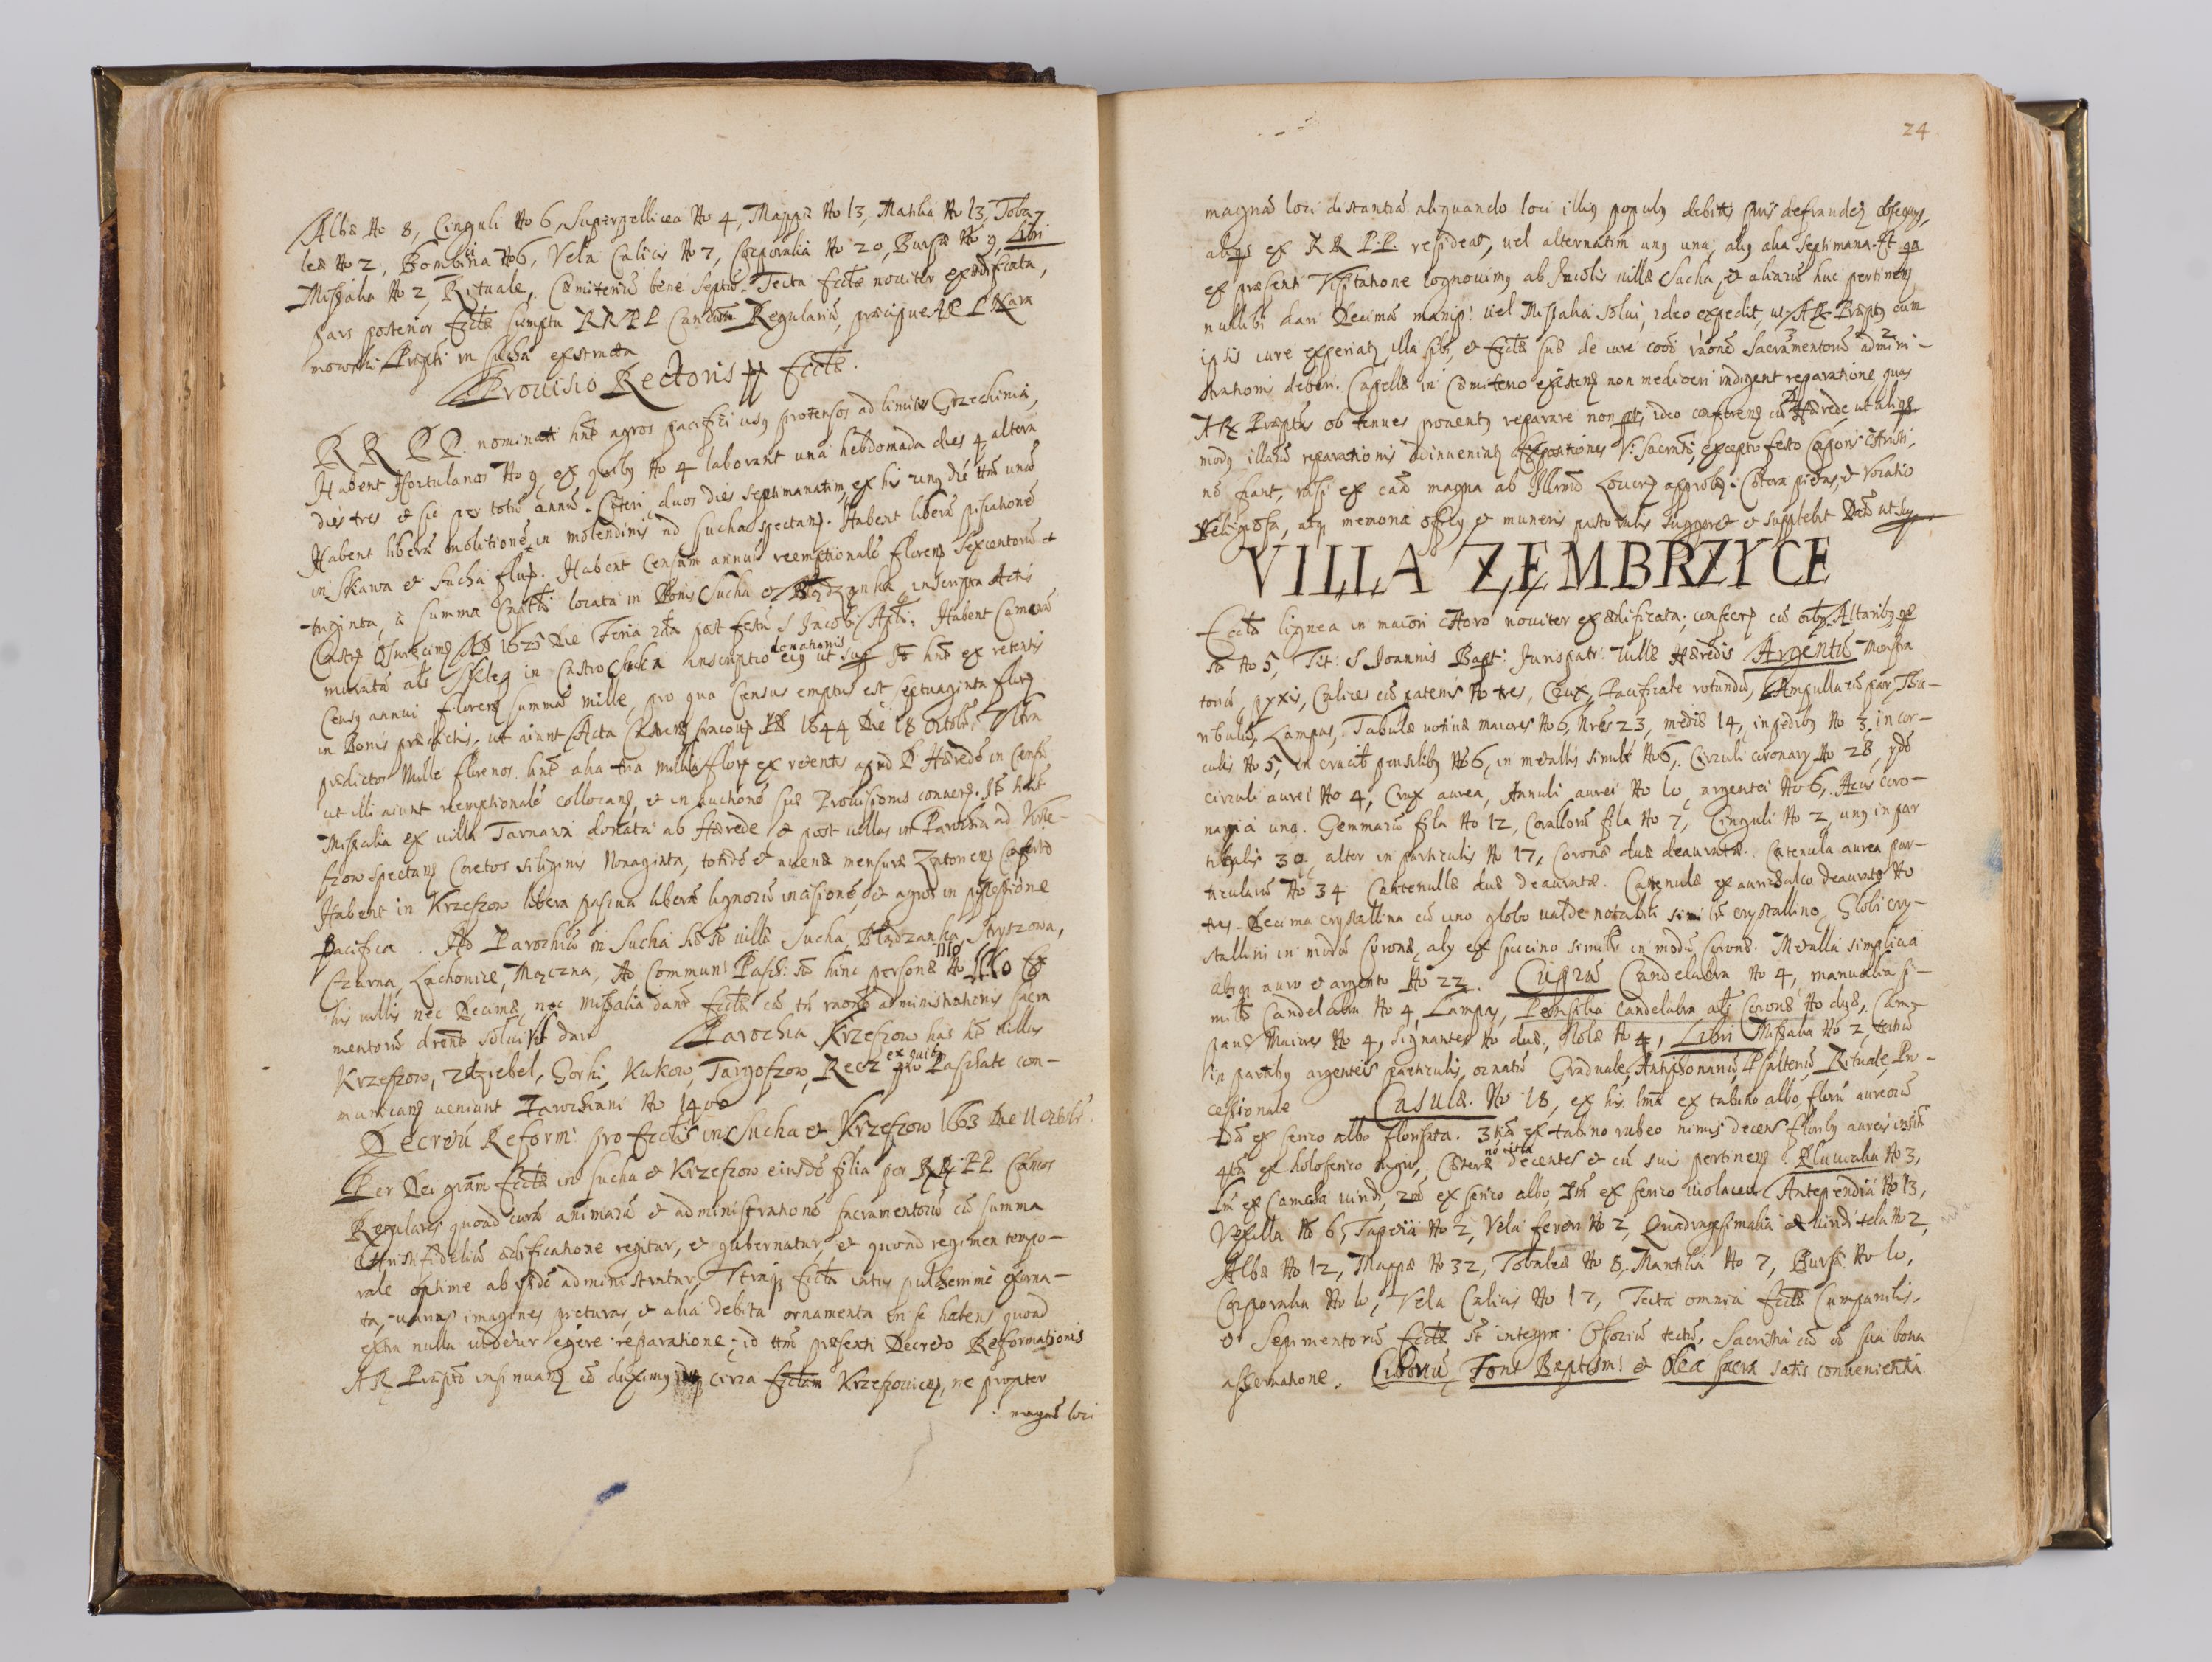 Albæ No 8, Cinguli No 6, Superpellicea No 4, Mappæ No 13, Mantilia No 13, Toba-
leæ No 2, Bombicina No 6, Vela Calicis No 7, Corporalia No 20, Bursæ No 9, Libri
Missalia No 2, Rituale, Cæmiteriũ bene septũ. Tecta Eccłæ noviter exædificata,
pars posterior Eccłæ sumptu RR PP Regulariũ, præcipue
in Sucha exstructa
Provisio Rectoris Eccłæ.
RR PP. nominati hñt agros pacificè usq protensos ad limites Grzechinia,
Habent Hortulanos No 9, ex quibq No 4 laborant una hebdomada dies 4 altera
dies tres et sic per totũ annũ. Cæteri duos dies septimanatim, ex his unq diẽ ttm unũ
Habent liberã molitionẽ in molendinis ad Sucha spectan. Habent liberã piscationẽ
in Skawa et Sucha fluv. Habent Censum annuũ reemptionalẽ floren Sexcentorũ et
-triginta, à summa locata in Bonis Sucha et inscripta Actis
Castr AD 1625 Die Feria 2da post festũ S Jacobi Apli. Habent Camerã
in Castro Sucha inscriptio donationis eiq ut sup Itẽ hñt ex retentis
Censq annui floren summã mille, pro qua Census emptus est septuaginta flor
in Bonis prædictis, ut aiunt Acta 1644 Die 18 Octobr, Ultra
prædictos Mille florenos hñt alia tria millia flor ex retentis apud P Hæredẽ in Censũ
ut illi aiunt reemptionalẽ collocan, et in auctionẽ suæ Provisionis conver. Itẽ hñt
Missalia ex villa Tarnawa donata ab Hærede et post villas in Parochia ad Krze-
szow spectan Coretos siliginis Nonaginta, totidẽ et avenæ mensuræ Zatorien
Habent in Krzeszow libera pascua liberã lignorũ incisionẽ, et agros in possessione
pacifica. Ad Parochiã in Sucha hæ st villæ Sucha, Błądzanka, Stryszowa,
Czarna, Lachowice, Mączna, Ad Communi Pasch: st hinc personæ No 1110
his villis nec Decimæ, nec missalia dant Eccłæ cũ tñ raone administrationis sacra
mentorũ solui dari Parochia Krzeszow has ht villas
Krzeszow, Gorki, Kukow, Targoszow, ex quibq pro Paschate com-
munican veniunt Parochiani No 1400
Decretũ Reform: pro Eccłis in Sucha et Krzeszow 1663 Die 11 Octobr.
Per Dei grãm Eccłæ in Sucha et Krzeszow eiusdẽ filia per RR PP Canos
Regulares quoad curã animarũ et administrationẽ sacramentorũ cũ summa
Christi fideliũ ædificatione regitur, et gubernatur, et quoad regimen tempo-
rale optime ab ijsdẽ administratur, Utraq Eccła intus pulcherrimè exorna-
ta, varias imagines picturas, et alia debita ornamenta in se habens quoad
extra nulla videtur egere reparatione; id ttm præsenti Decreto Reformationis
AR Præpto insinuan eẽ duximq circa Eccłam Krzeszovicen, ne propter
magnã loci
24
magnã loci distantiã aliquando loci illiq populq debitis suis defraudet obsequijs,
aliqs ex RR PP. resideat, vel alternatim unq una, aliq alia septimana. Et qa
ex præsenti Visitatione cognovimq ab Incolis villæ Sucha, et aliarũ huc pertinen
nullibi dari Decimã manip: vel Missalia solui, ideo expedit, ut AR Præptq cum
ipsis iure experiat, illa sibi, et Eccłæ suæ de iure raone Sacramentorũ admini-
strationis deberi. Capellæ in Cæmiterio existen non mediocri indigent reparatione, quas
AR Præptus ob tenues proventq reparare non pt, ideo conferen cũ Hærede, ut aliqs
modq illarũ reparationis adinveniat. Expositiones V: Sacrmti, excepto festo Corporis Christi,
nõ fiant, nisi ex caã magna ab Illrmo Loci approbã. Cætera pietas, et Vocatio
Religiosa, atq memoria officij et muneris pastoralis suggeret et supplebit Dat ut sup
VILLA ZEMBRZYCE
Eccła lignea in maiori Choro noviter exædificata; consecr cũ oibq Altaribq, qæ
st No 5, Tit: S Joannis Bapt: Jurispatr: Villæ Hæredis Argentũ Monstra
toriũ, pyxis, Calices cũ patenis No tres, Crux, Pacificale rotundũ, Ampullarũ par, Thu-
ribulũ, Lampas, Tabulæ votivæ maiores No 6, 23, mediæ 14, in pedibq No 3, in cor-
culis No 5, in crucib pensilibq No 6, in metallis similr No 6, Circuli coronarij No 28,
circuli aurei No 4, Crux aurea, Annuli aurei No 10, argentei No 6, Acus coro-
naria una. Gemmarũ fila No 12, Corallorũ fila No 7, Cinguli No 2, unq in par
ticulis 30, alter in particulis No 17, Coronæ duæ deauratæ. Catenula aurea par-
ticularũ No 34 Cantenullæ duæ deauratæ. Catenulæ ex aurichalco deauratæ No
tres. Decima crystallina cũ uno globo valde notabili similr crystallino, Globi cry-
stallini in modũ Coronæ, alij ex succino similr in modũ Coronæ. Metalla simplicia
absq auro et argento No 22. Cuprũ Candelabra No 4, manualia si-
militr Candelabra No 4, Lampas, Pensilia candelabra als Coronæ No duæ, Cam-
panæ Maiores No 4, Signantes No duæ, Nolæ No 4, Libri Missalia No 2, tertiũ
argenteis particulis, ornatũ Graduale, Antiphonariũ, Psalteriũ, Rituale, Pro-
cessionale Casulæ. No 18, ex his Ima ex tabino albo, florũ aureorũ
2da ex serico albo florisata. 3tia ex tabino rubeo nimis decens floribq aureis
4ta ex holoserico nigro, Cæteræ nõ ita decentes et cũ suis pertinen. Pluvialia No 3,
Im ex Camcha viridi, 2dũ ex serico albo, 3m ex serico violaceo Antependia No 13,
Vexilla No 6, Tapetia No 2, Vela No 2, Quadragesimalia viridi tela No 2,
Albæ No 12, Mappæ No 32, Tobaleæ No 8, Mantilia No 7, Bursæ No 10,
Corporalia No 10, Vela Calicis No 17, Tecta omnia Eccłæ Campanilis,
et Sepimentorũ Eccłæ st integra Ossoriũ tectũ, Sacristia cũ sua bona
asservatione. Ciboriũ, Fons Baptismi et Olea sacra satis convenientia